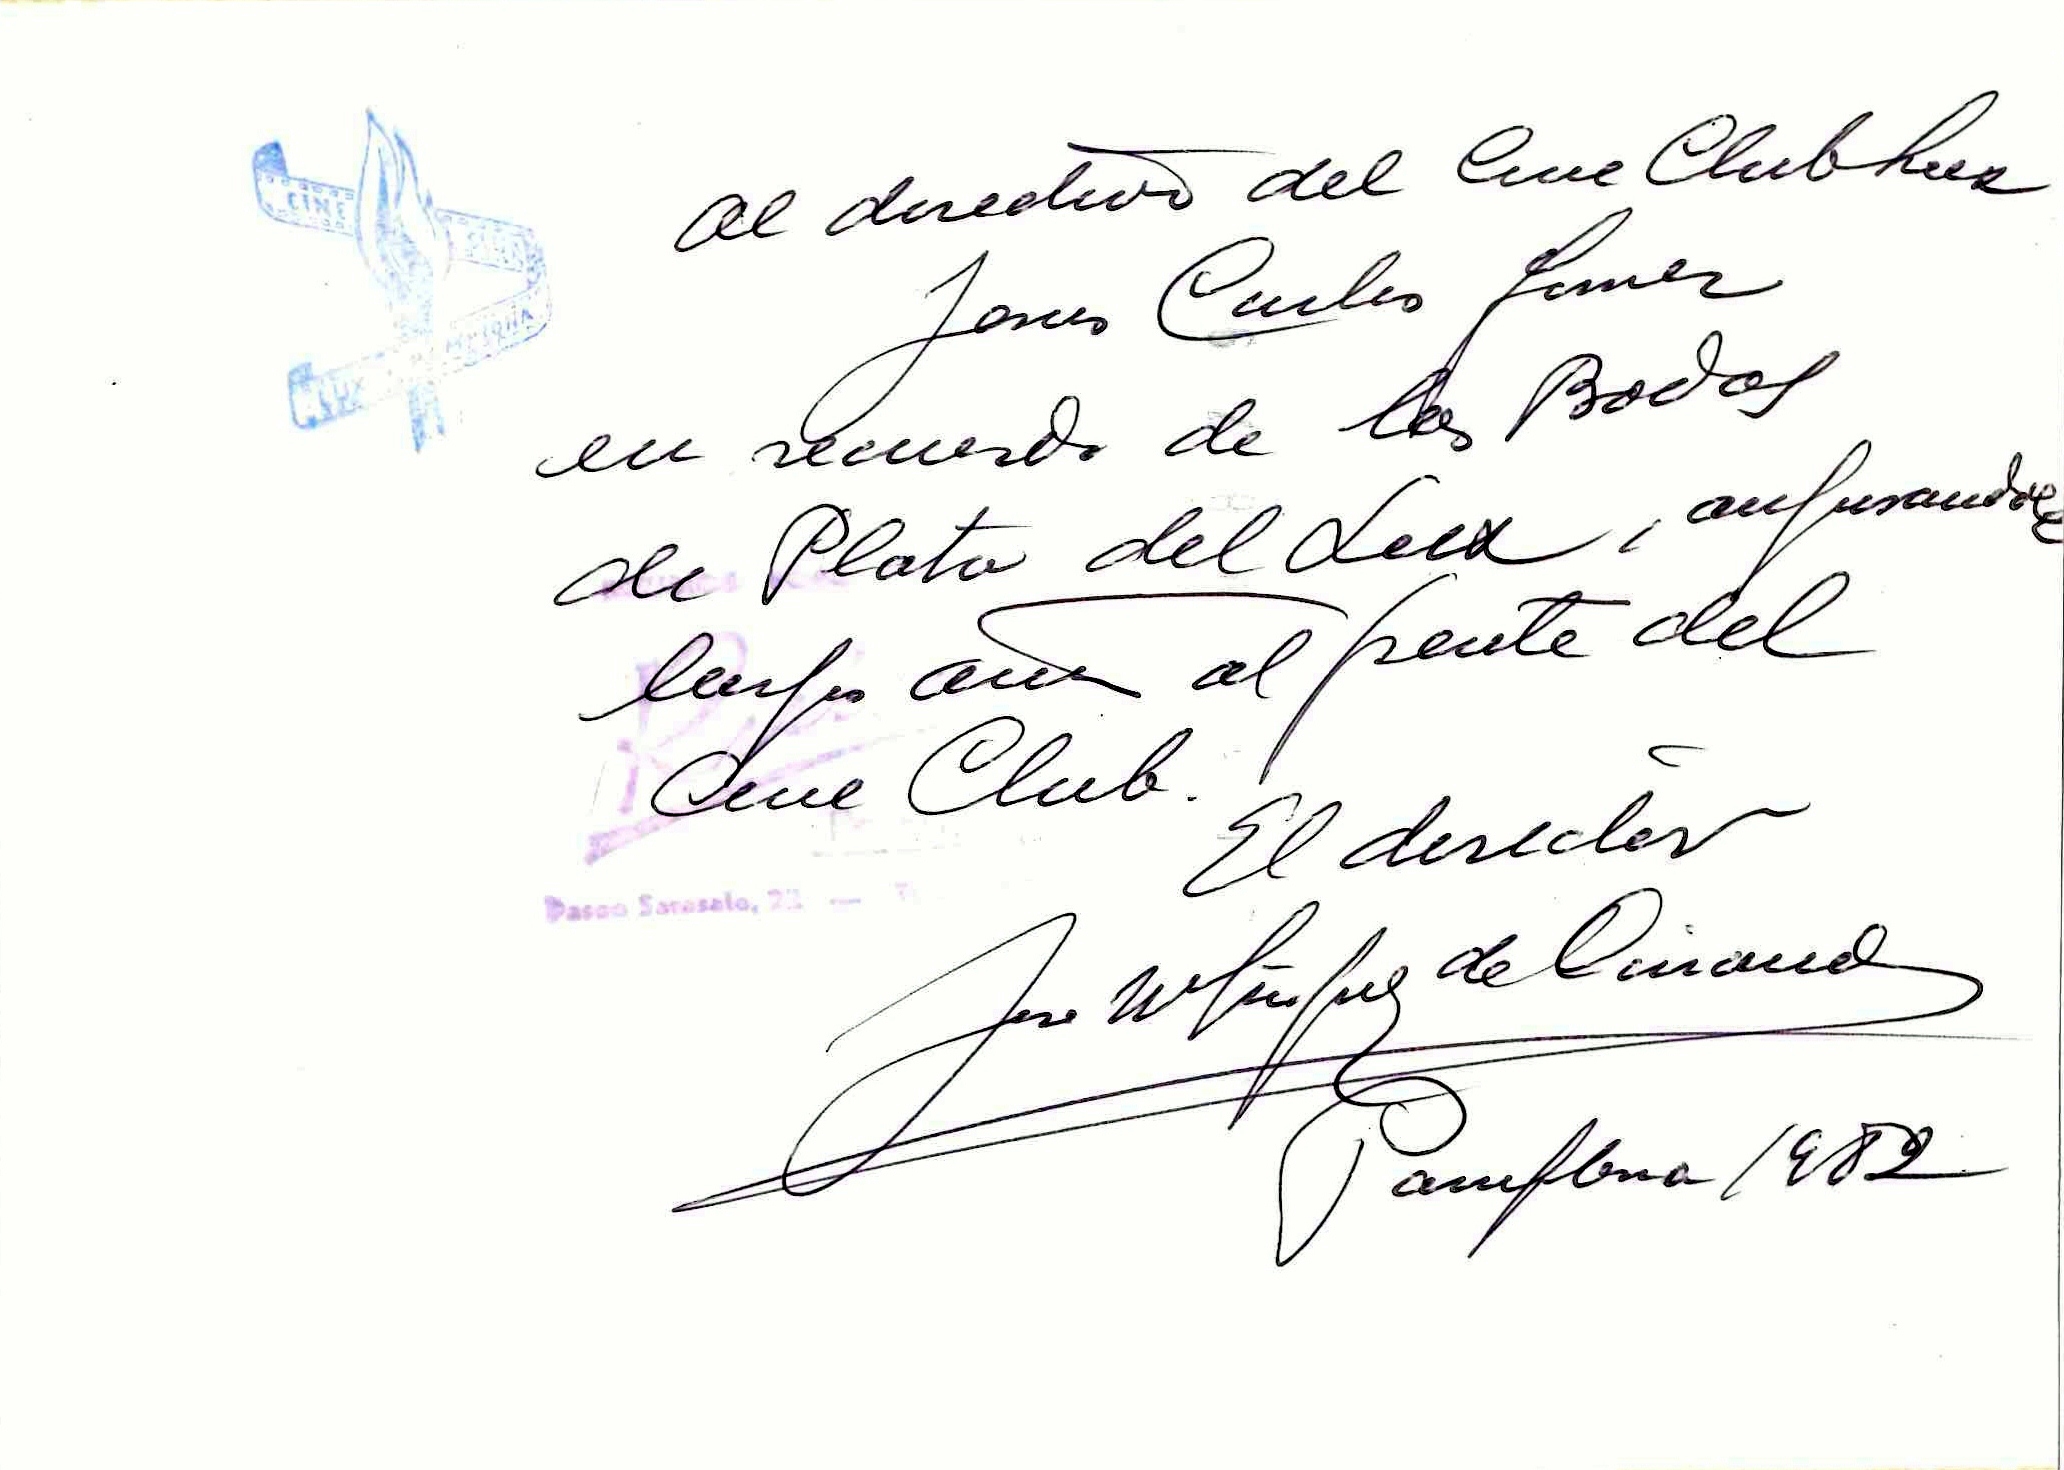 CINE
CLUB
LUX PAMPLONA
al directivo del Cine Club Lux
Jesus Carlos Gomez
en recuerdo de las Bodas
de Plata del Lux, augurandole
largos años al frente del
Cine Club.
El director
Jose Mª de Miranda
Pamplona 1982
Paseo Sarasate, 22 —